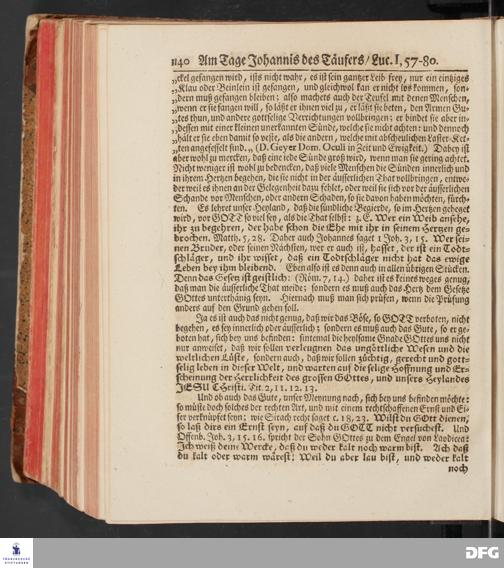 1140 Am Tage Johannis des Täufers/ Luc. I, 57-80.
„ckel gefangen wird, ists nicht wahr, es ist sein gantzer Leib frey, nur ein eintziges
„Klau oder Beinlein ist gefangen, und gleichwol kan er nicht los kommen, son-
„dern muß gefangen bleiben; also machets auch der Teufel mit denen Menschen,
„wenn er sie fangen will, so läßt er ihnen viel zu, er läßt sie beten, den Armen Gu-
„tes thun, und andere gottselige Verrichtungen vollbringen; er bindet sie aber in-
„dessen mit einer kleinen unerkannten Sünde, welche sie nicht achten: und dennoch
„hält er sie eben damit so veste, als die andern, welche mit abscheulichen Laster-Ket-
„ten angefesselt sind. „ (D. Geyer Dom. Oculi in Zeit und Ewigkeit.) Dabey ist
aber wohl zu mercken, daß eine iede Sünde groß wird, wenn man sie gering achtet.
Nicht weniger ist wohl zu bedencken, daß viele Menschen die Sünden innerlich und
in ihrem Hertzen begehen, die sie nicht in der äusserlichen That vollbringen, entwe-
der weil es ihnen an der Gelegenheit dazu fehlet, oder weil sie sich vor der äusserlichen
Schande vor Menschen, oder andern Schaden, so sie davon haben möchten, fürch-
ten. Es lehret unser Heyland, daß die sündliche Begierde, so im Hertzen geheget
wird, vor GOTT so viel sey, als die That selbst: z. E. Wer ein Weib ansiehe,
ihr zu begehren, der habe schon die Ehe mit ihr in seinem Hertzen ge-
brochen. Matth. 5, 28. Daher auch Johannes saget 1 Joh. 3, 15. Wer sei-
nen Bruder, oder seinen Nächsten, wer er auch ist, hasset, der ist ein Todt-
schläger, und ihr wisset, daß ein Todtschläger nicht hat das ewige
Leben bey ihm bleibend. Eben also ist es denn auch in allen übrigen Stücken.
Denn das Gesetz ist geistlich: (Röm. 7, 14.) daher ist es keines weges genug,
daß man die äusserliche That meide; sondern es muß auch das Hertz dem Gesetze
GOttes unterthänig seyn. Hiernach muß man sich prüfen, wenn die Prüfung
anders auf den Grund gehen soll.
Ja es ist auch das nicht genug, daß wir das Böse, so GOTT verboten, nicht
begehen, es sey innerlich oder äusserlich; sondern es muß auch das Gute, so er ge-
boten hat, sich bey uns befinden: sintemal die heylsame Gnade GOttes uns nicht
nur anweiset, daß wir sollen verleugnen das ungöttliche Wesen und die
weltlichen Lüste, sondern auch, daß wir sollen züchtig, gerecht und gott-
selig leben in dieser Welt, und warten auf die selige Hoffnung und Er-
scheinung der Herrlichkeit des grossen GOttes, und unsers Heylandes
JESU Christi. Tit. 2, 11. 12. 13.
Und ob auch das Gute, unser Meynung nach, sich bey uns befinden möchte:
so müste doch solches der rechten Art, und mit einem rechtschaffenen Ernst und Ei-
fer verknüpfet seyn: wie Sirach recht saget c. 18, 23. Wilst du GOtt dienen,
so laß dirs ein Ernst seyn, auf daß du GOTT nicht versuchest. Und
Offenb. Joh. 3, 15. 16. spricht der Sohn GOttes zu dem Engel von Laodicea:
Ich weiß deine Wercke, daß du weder kalt noch warm bist. Ach daß
du kalt oder warm wärest! Weil du aber lau bist, und weder kalt
noch
FRANCKESCHE
STIFTUNGEN
DFG